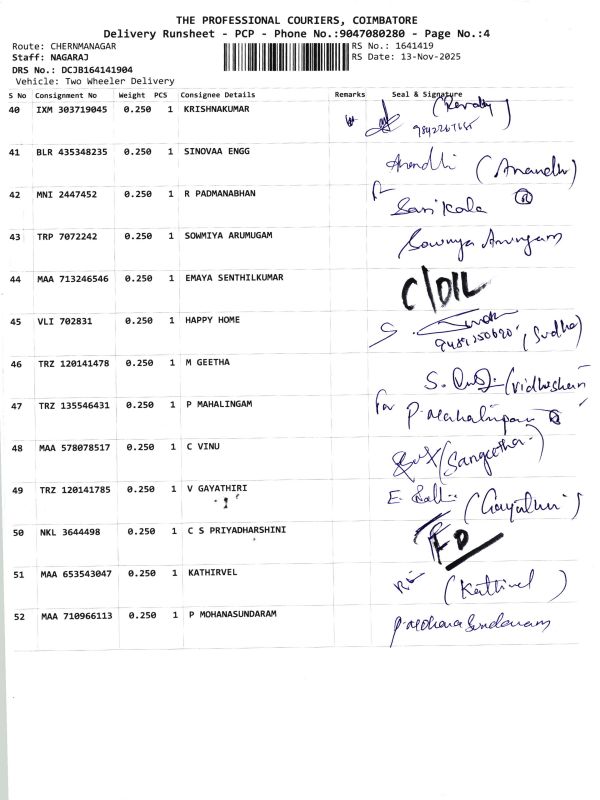 THE PROFESSIONAL COURIERS, COIMBATORE
Delivery Runsheet - PCP - Phone No.:9047080280 - Page No.:4
Route: CHERNMANAGAR RS No.: 1641419
Staff: NAGARAJ RS Date: 13-Nov-2025
DRS No.: DCJB164141904
Vehicle: Two Wheeler Delivery
S No Consignment No Weight PCS Consignee Details Remarks Seal & Signature
40 IXM 303719045 0.250 1 KRISHNAKUMAR (Revathy)
41 BLR 435348235 0.250 1 SINOVAA ENGG Anandhi (Anandhi)
42 MNI 2447452 0.250 1 R PADMANABHAN Sasikala
43 TRP 7072242 0.250 1 SOWMIYA ARUMUGAM Sowmya Arumugam
44 MAA 713246546 0.250 1 EMAYA SENTHILKUMAR C/DIL
45 VLI 702831 0.250 1 HAPPY HOME S. (Sudha)
46 TRZ 120141478 0.250 1 M GEETHA S.
47 TRZ 135546431 0.250 1 P MAHALINGAM For P. Mahalingam
48 MAA 578078517 0.250 1 C VINU (Sangeetha)
49 TRZ 120141785 0.250 1 V GAYATHIRI E. (Gayathiri)
50 NKL 3644498 0.250 1 C S PRIYADHARSHINI FD
51 MAA 653543047 0.250 1 KATHIRVEL (Kathirvel)
52 MAA 710966113 0.250 1 P MOHANASUNDARAM P. Mohana Sundaram